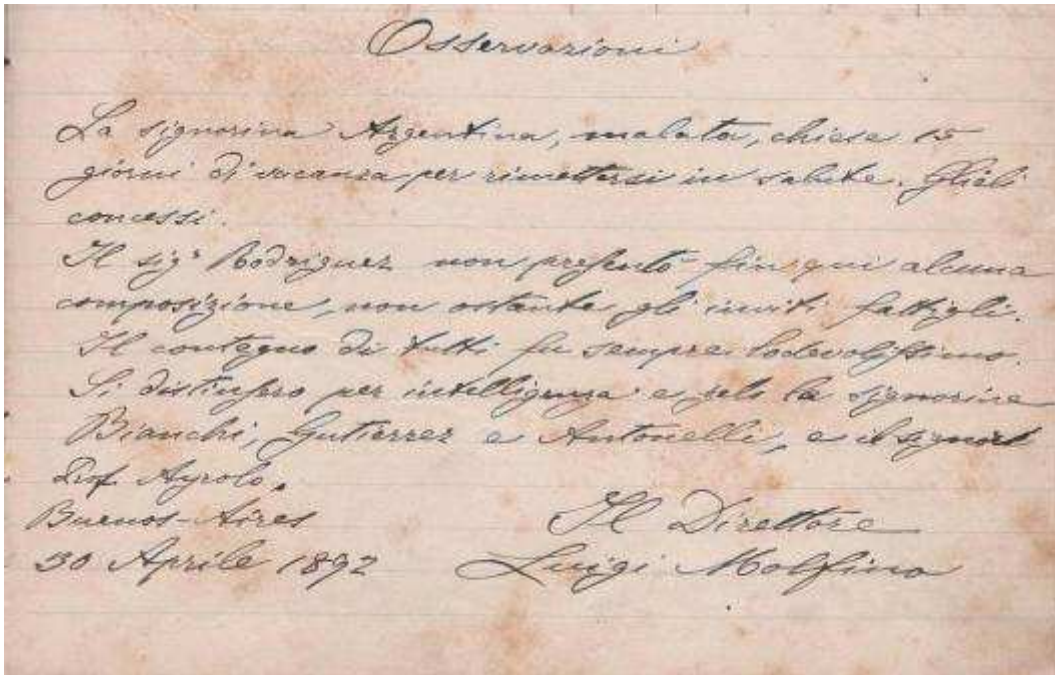 Osservazioni
La signorina Argentina, malata, chiese 15
giorni di vacanza per rimettersi in salute. Glieli
concessi.
Il sig.r Rodriguez non presentò fin qui alcuna
composizione, non ostante gli inviti fattigli.
Il contegno di tutti fu sempre lodevolissimo.
Si distinsero per intelligenza e zelo le signorine
Bianchi, Gutierrez e Antonelli, e il signor
Prof. Ayrolo.
Buenos-Aires Il Direttore
30 Aprile 1892 Luigi Molfino